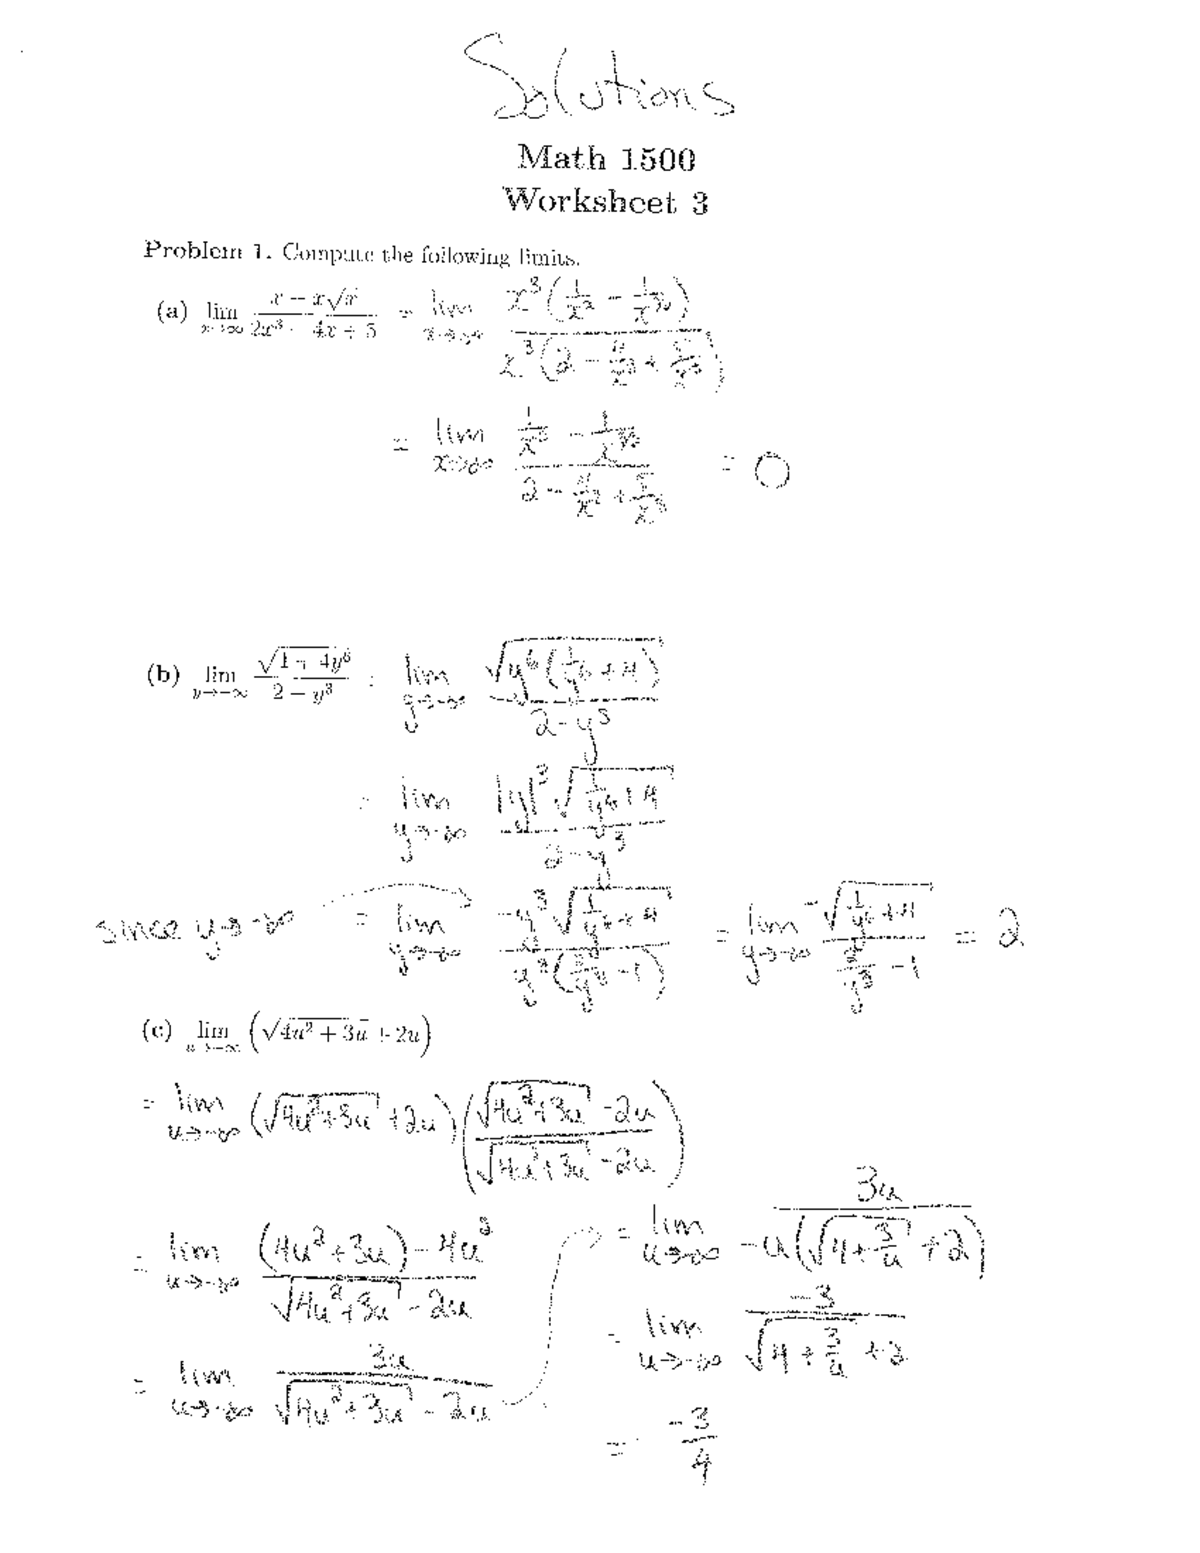 Solutions
Math 1500
Worksheet 3
Problem 1. Compute the following limits.
(a) lim x→∞ (x − x√x)/(2x³ − 4x + 5) = lim x→∞ x³(1/x² − 1/x^(3/2)) / x³(2 − 4/x² + 5/x³)
= lim x→∞ (1/x² − 1/x^(3/2)) / (2 − 4/x² + 5/x³) = 0
(b) lim y→−∞ √(1 + 4y⁶)/(2 − y³) = lim y→−∞ √(y⁶(1/y⁶ + 4))/(2 − y³)
= lim y→−∞ |y|³√(1/y⁶ + 4)/(2 − y³)
since y→−∞ = lim y→−∞ −y³√(1/y⁶ + 4)/(y³(2/y³ − 1)) = lim y→−∞ −√(1/y⁶ + 4)/(2/y³ − 1) = 2
(c) lim u→−∞ (√(4u² + 3u) + 2u)
= lim u→−∞ (√(4u² + 3u) + 2u)((√(4u² + 3u) − 2u)/(√(4u² + 3u) − 2u))
= lim u→−∞ ((4u² + 3u) − 4u²)/(√(4u² + 3u) − 2u)
= lim u→−∞ 3u/(√(4u² + 3u) − 2u)
= lim u→−∞ 3u/(−u(√(4 + 3/u) + 2))
= lim u→−∞ −3/(√(4 + 3/u) + 2)
= −3/4